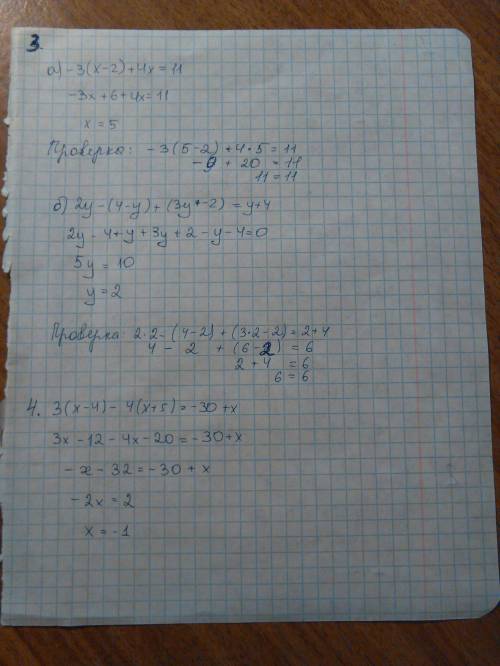 3.
а) -3(x-2)+4x=11
-3x+6+4x=11
x=5
Проверка: -3(5-2)+4·5=11
-9+20=11
11=11
б) 2y-(4-y)+(3y-2)=y+4
2y-4+y+3y+2-y-4=0
5y=10
y=2
Проверка 2·2-(4-2)+(3·2-2)=2+4
4-2+(6-2)=6
2+4=6
6=6
4. 3(x-4)-4(x+5)=-30+x
3x-12-4x-20=-30+x
-x-32=-30+x
-2x=2
x=-1